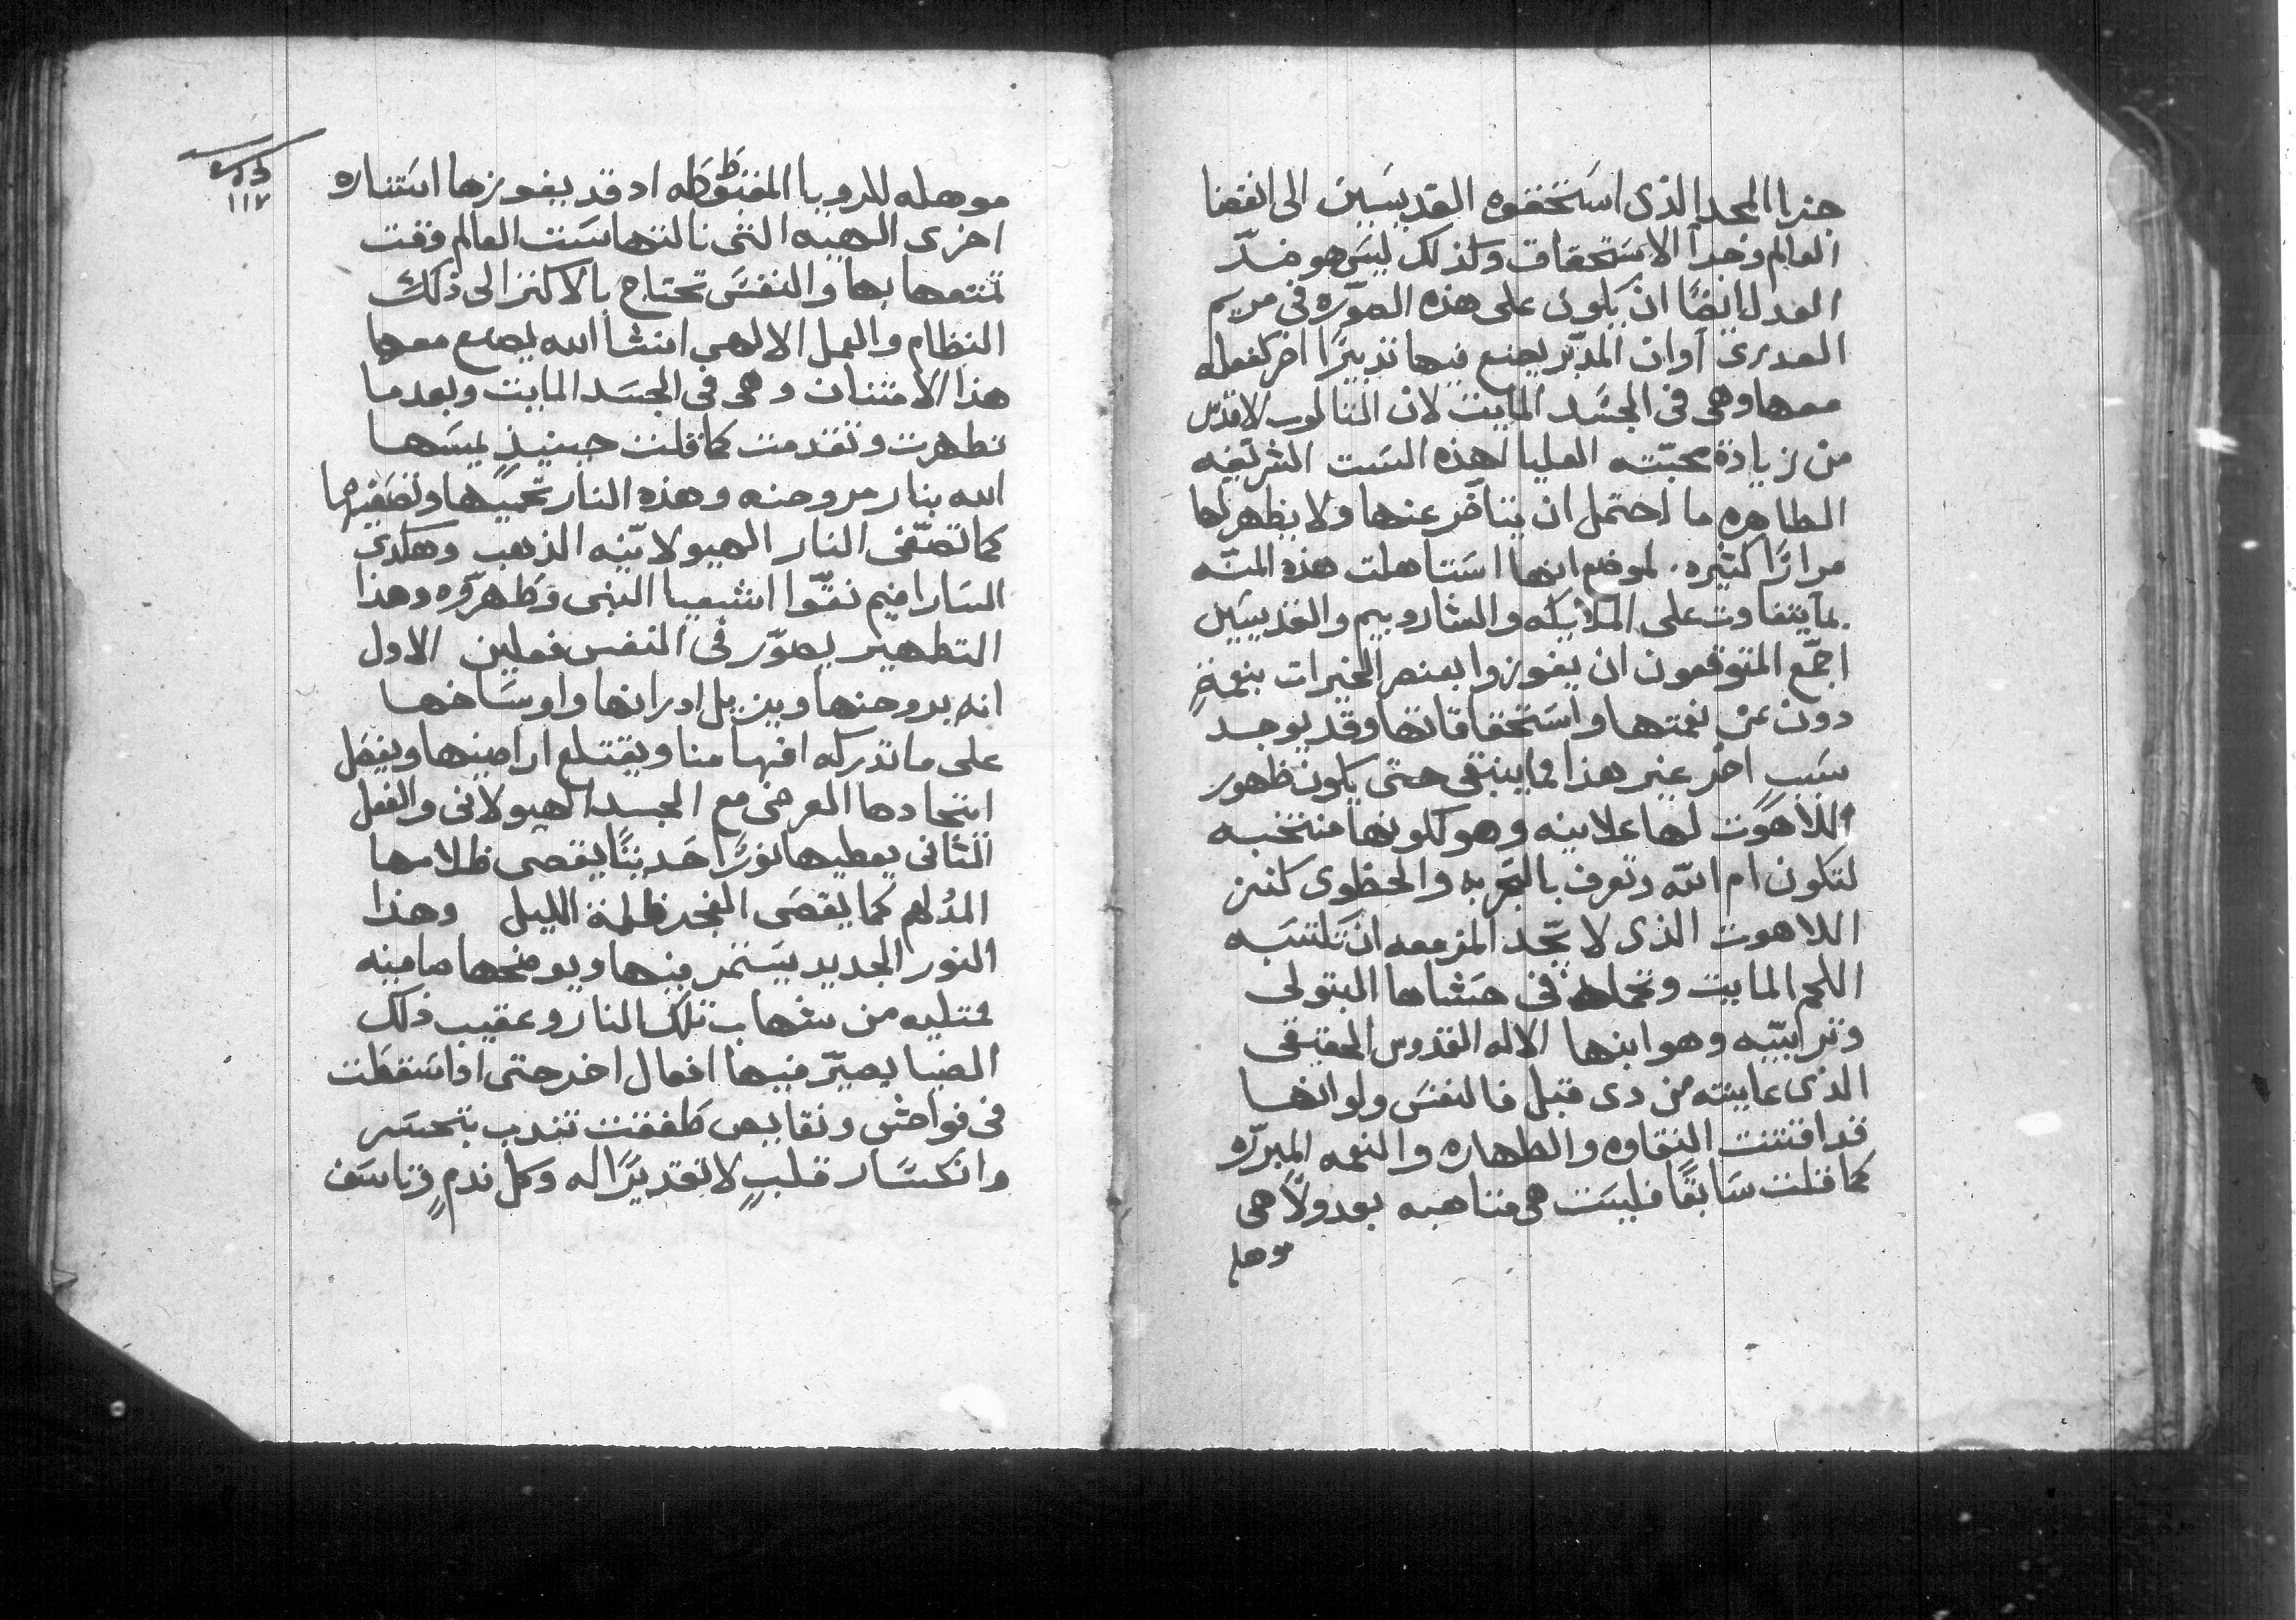 جزا المجد الذى استحقوه القديسين الى انقضا
العالم وجدا الاستحقاق ولذلك ليس هو ضدّ
العدل ايضًا ان يكون على هذه الصوّره فى مريم
العدرى اوان المدبّر يصنع فيها تدبيرًا اخر كفعله
معها وهى فى الجسد المايت لان الثالوث الاقدس
من زيادة محبّته العليا لهذه الست الشريفه
الطاهره ما احتمل ان يتاخر عنها ولا يظهر لها
مرارًا كثيره. لموضع انها استاهلت هذه المنّه
بما يتفاوت على الملايكه والشاروبيم والقديسين
اجمّع المتوقعون ان يفوزوا بعنصر الخيرات بنعمةٍ
دون عن نعمتها واستحقاقاتها وقد يوجد
سبب اخر غير هذا فماينبغى حتى يكون ظهور
اللاهوت لها علانيه وهو لكونها منتخبه
لتكون ام الله وتعرف بالتجربه والحظوى كنز
اللاهوت الذى لا يحّد المزمعه ان تلبسه
اللحم المايت وتحمله فى حشاها البتولى
وترابيّه وهو ابنها الاله القدوس الحقيقى
الذى عاينته من دى قبل فالنفس ولو انها
قد اقتنت النقاوه والطهاره والنعمه المبررّه
كما قلت سابقًا فليست هى متاهبه بعد ولا هى
موهله
موهله للرويا المغبوطه اد قد يعوزها استناره
اخرى الهيه التى نالتها ست العالم وقت
تمتعها بها والنفس تحتاج بالاكثر الى ذلك
النظام والعمل الالهى انشا الله يصنع معها
هذا الامتنان وهى فى الجسد المايت وبعد ما
تطهرت وتقدمت كما قلت حينيذٍ يمسها
الله بنار مروحنه وهذه النار تحميها وتصفيها
كما تصفّى النار الهيولانيّه الذهب وهكذى
السارافيم نقّوا اشعيا النبى وطهروّه وهذا
التطهير يصوّر فى النفس فعلين الاول
انه يروحنها ويزيل ادرانها واوساخها
على ما تدركه افهامنا ويقتلع اراضيها ويفصل
اتحادها العرضى مع الجسد الهيولانى والفعل
الثانى يعطيها نورًا حديثًا يقصى ظلامها
المدلهم كما يقصى الفجر ظلمة الليل وهذا
النور الجديد يستمر فيها ويوضحها ضامينه
ممتليه من شهاب تلك النار وعقيب ذلك
الضيا يصيّر فيها افعال اخر حتى اداسقطت
فى فواحش ونقايص طفقت تندب بتحسر
وانكسار قلبٍ لا تقديرًا له وكل ندمٍ وتاسف
١١٧